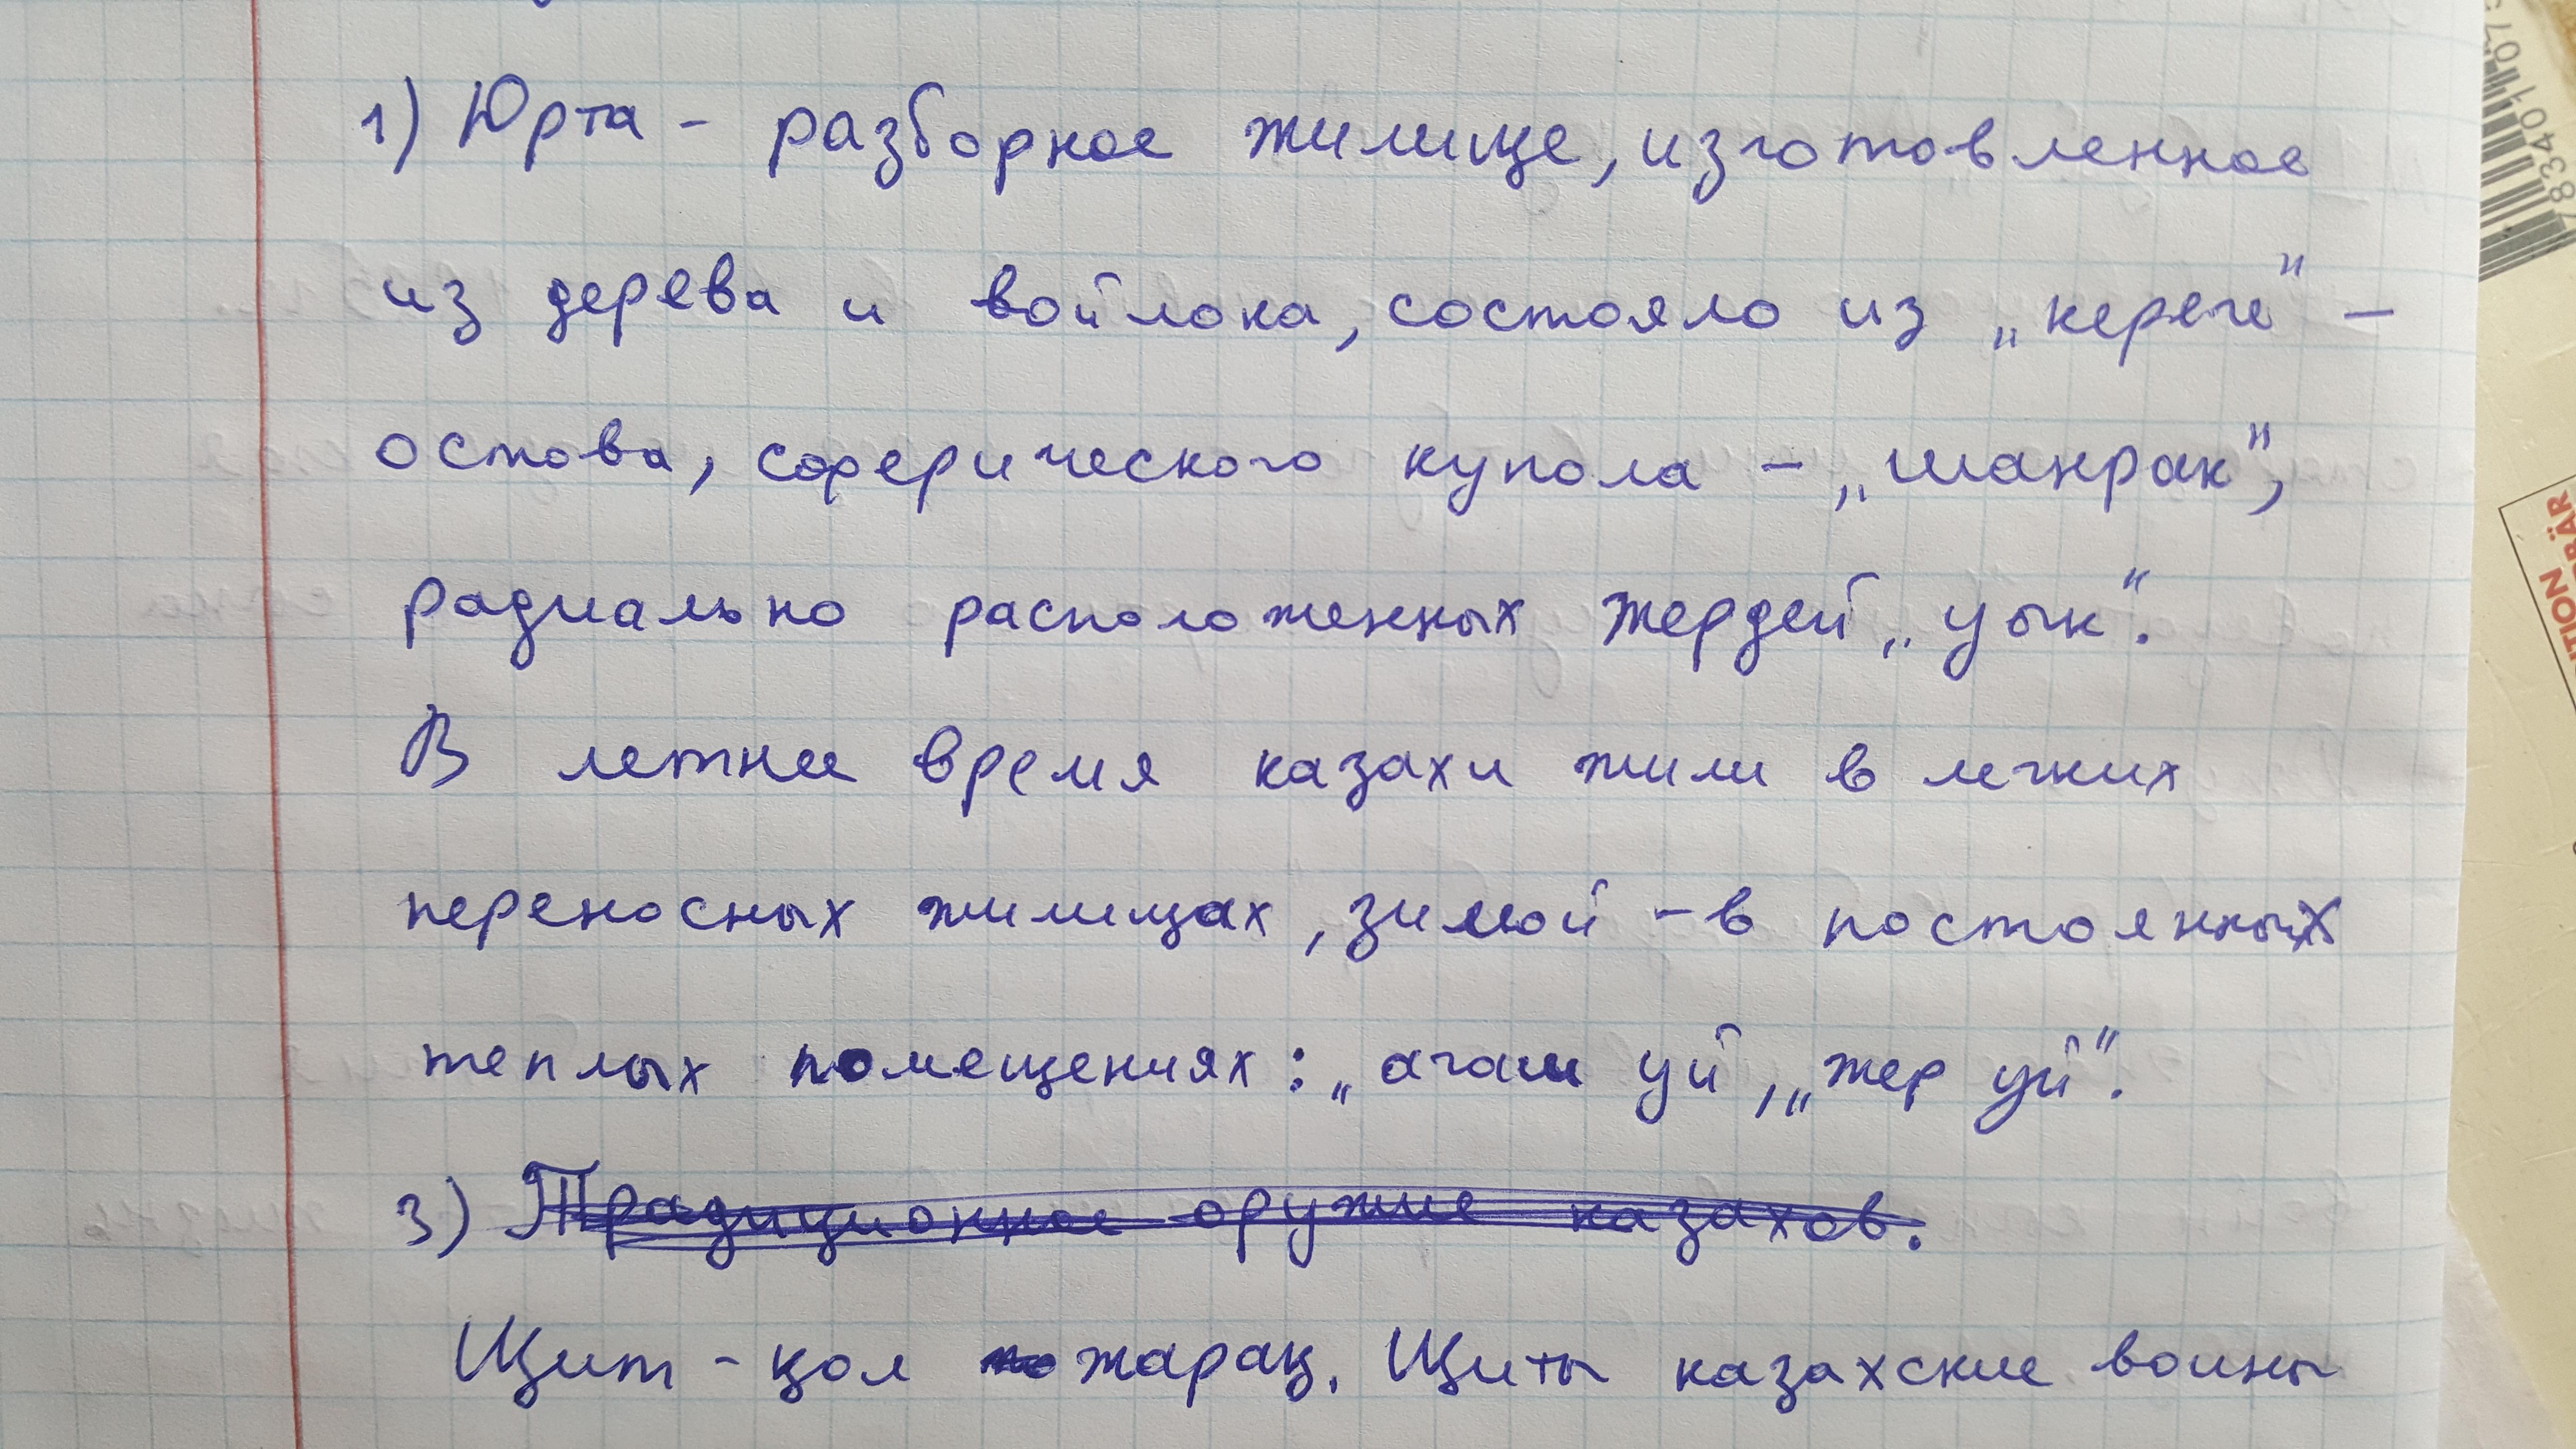 1) Юрта - разборное жилище, изготовленное
из дерева и войлока, состояло из „кереге" -
остова, сферического купола - „шанрак",
радиально расположенных жердей „уык".
В летнее время казахи жили в легких
переносных жилищах, зимой - в постоянных
теплых помещениях: „агаш уй, „жер уй".
3) Традиционное оружие казахов.
Щит - қол жарақ. Щиты казахские воины
783340107